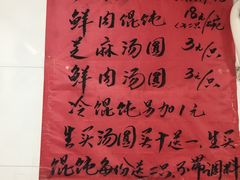 鲜肉馄饨 18元/碗
芝麻汤圆 3元/只
鲜肉汤圆 3元/只
冷馄饨另加1元
生买汤圆买十送一,生买
馄饨每份送二只,不带调料